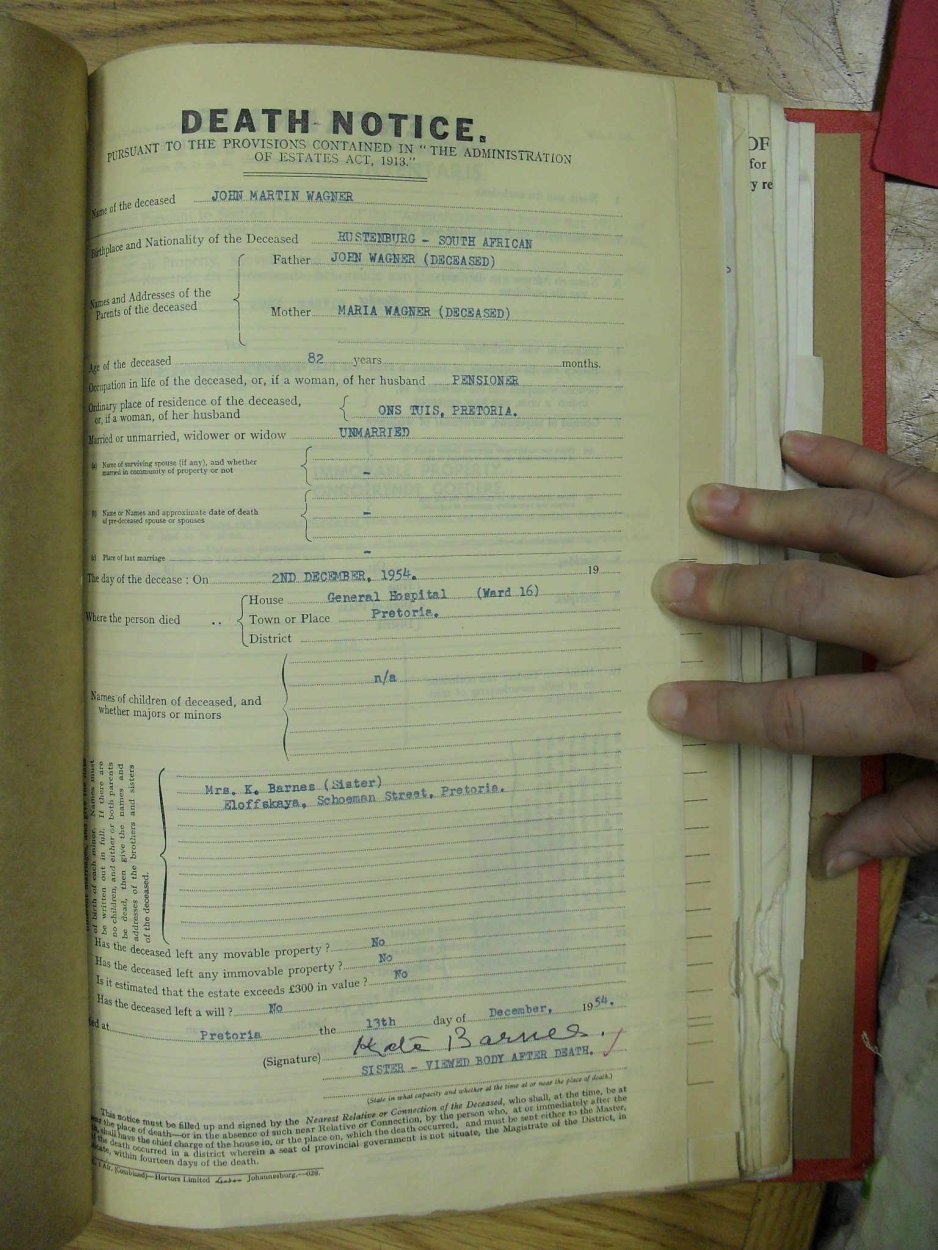 DEATH NOTICE.
PURSUANT TO THE PROVISIONS CONTAINED IN "THE ADMINISTRATION
OF ESTATES ACT, 1913."
OF
for
y re
Name of the deceased JOHN MARTIN WAGNER
Birthplace and Nationality of the Deceased RUSTENBURG - SOUTH AFRICAN
Names and Addresses of the
Parents of the deceased
Father JOHN WAGNER (DECEASED)
Mother MARIA WAGNER (DECEASED)
Age of the deceased 82 years months.
Occupation in life of the deceased, or, if a woman, of her husband PENSIONER
Ordinary place of residence of the deceased,
or, if a woman, of her husband ONS TUIS, PRETORIA.
Married or unmarried, widower or widow UNMARRIED
(a) Name of surviving spouse (if any), and whether
married in community of property or not -
(b) Name or Names and approximate date of death
of pre-deceased spouse or spouses -
(c) Place of last marriage -
The day of the decease : On 2ND DECEMBER, 1954. 19
Where the person died ..
House General Hospital (Ward 16)
Town or Place Pretoria.
District
Names of children of deceased, and
whether majors or minors
n/a
of birth of each minor. Names must
be written out in full. If there are
no children, and either or both parents
be dead, then give the names and
addresses of the brothers and sisters
of the deceased.
Mrs. K. Barnes (Sister)
Eloffskaya, Schoeman Street, Pretoria.
Has the deceased left any movable property ? No
Has the deceased left any immovable property ? No
Is it estimated that the estate exceeds £300 in value ? No
Has the deceased left a will ? No
ed at Pretoria the 13th day of December, 1954.
(Signature) Kate Barnes.
SISTER - VIEWED BODY AFTER DEATH.
(State in what capacity and whether at the time at or near the place of death.)
This notice must be filled up and signed by the Nearest Relative or Connection of the Deceased, who shall, at the time, be at
the place of death—or in the absence of such near Relative or Connection, by the person who, at or immediately after the
shall have the chief charge of the house in, or the place on, which the death occurred, and must be sent either to the Master,
if the death occurred in a district wherein a seat of provincial government is not situate, the Magistrate of the District, in
within fourteen days of the death.
(Combined)—Hortors Limited Johannesburg.